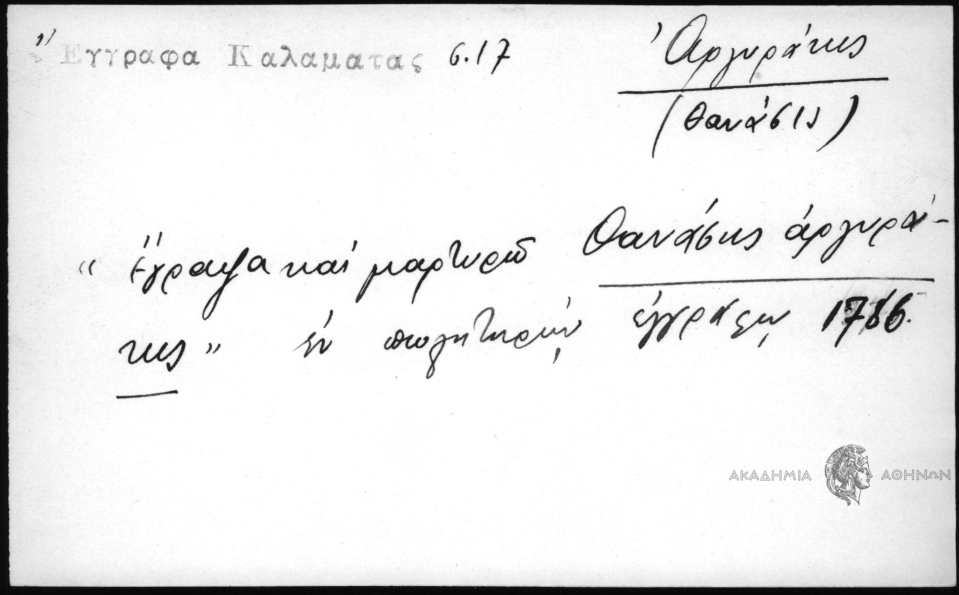 Ἔγγραφα Καλαματας σ.17
Ἀργυράκης
(Θανάσης)
« ἔγραψα καὶ μαρτυρῶ Θανάσης ἀργυρά-
κης » ἐν πωλητηρίῳ ἐγγράφῳ
ΑΚΑΔΗΜΙΑ ΑΘΗΝΩΝ